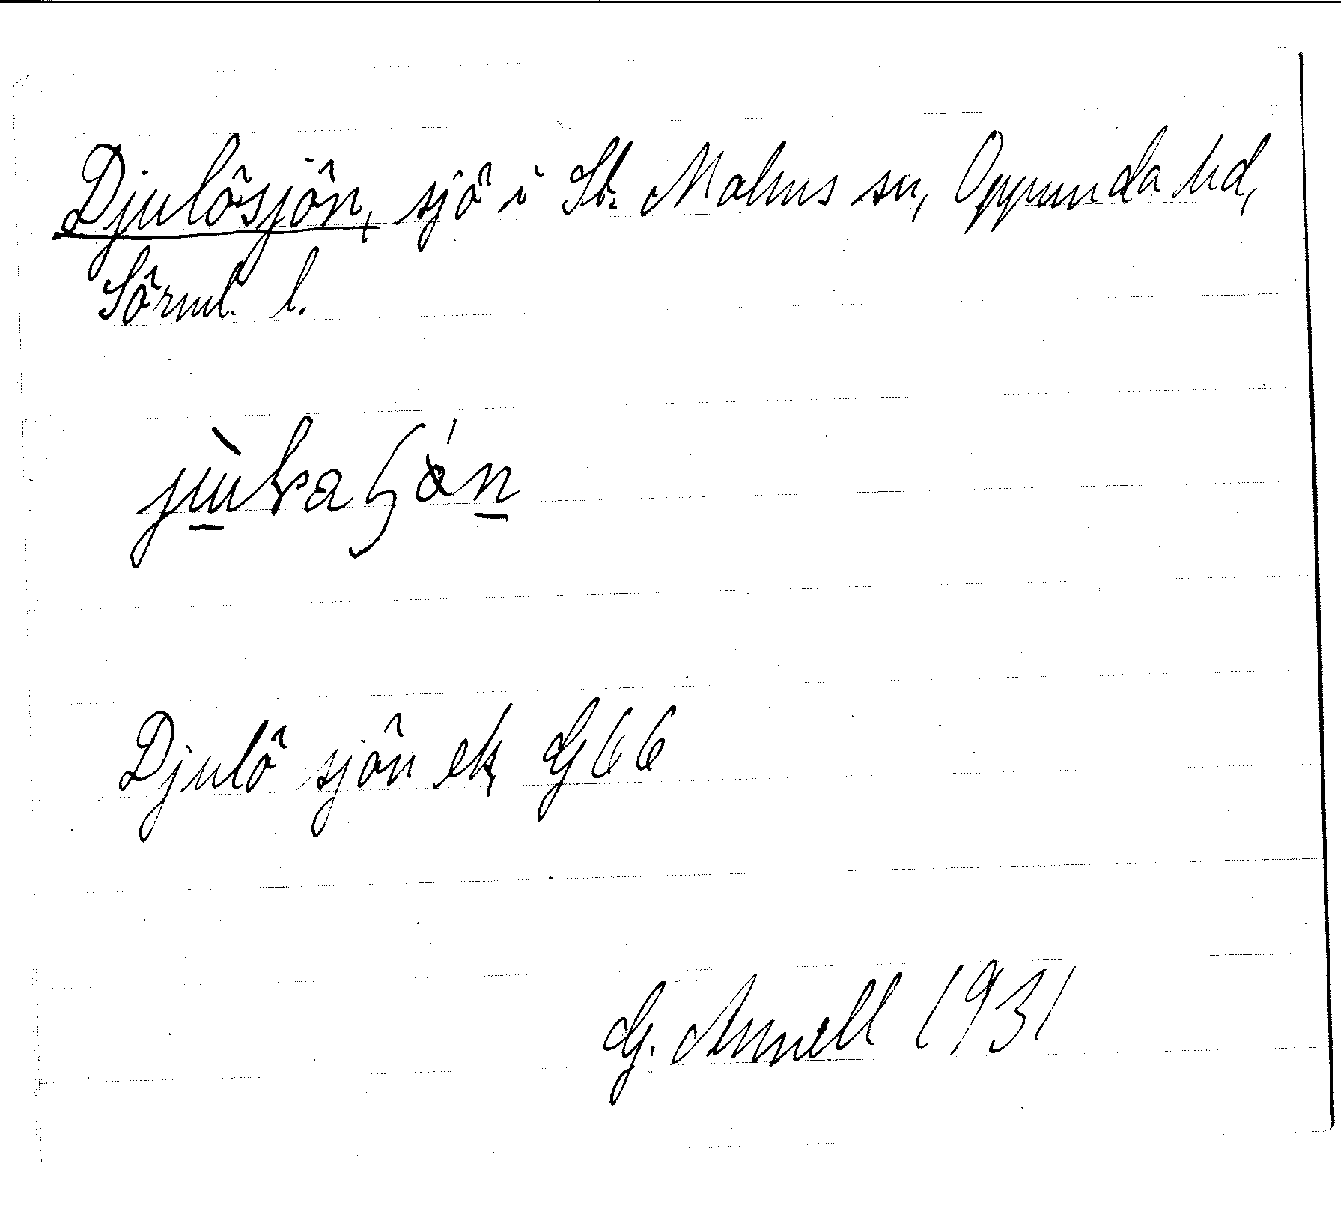 Djulösjön, sjö i St. Malms sn, Oppunda hd,
Sörml. l.
Djulö sjön ek G66
G. Annell 1931